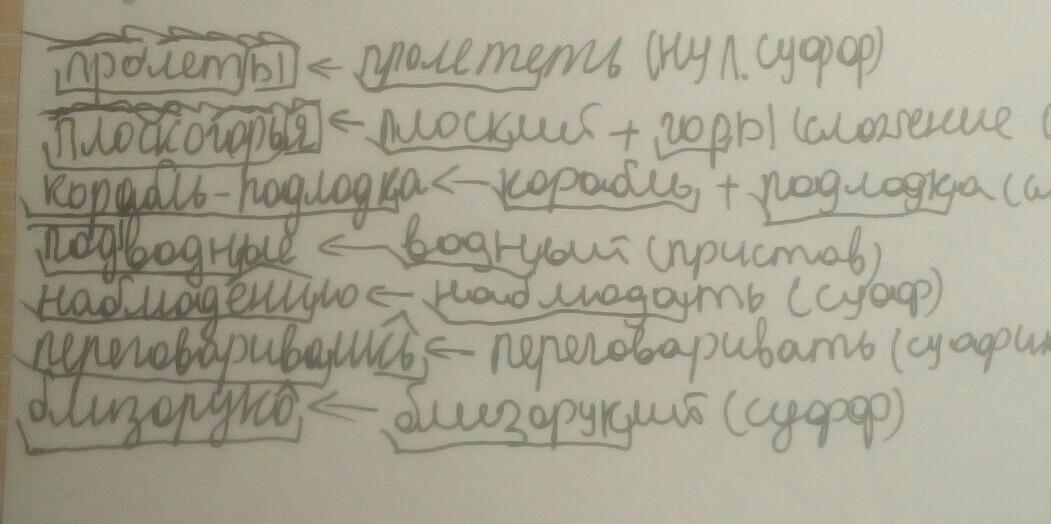 пролеты ← пролететь (нул. суфф)
плоскогорья ← плоский + горы (сложение (
корабль-подлодка ← корабль + подлодка (
подводные ← водный (пристав)
наблюдению ← наблюдать (суфф)
переговаривались ← переговаривать (суффик
близоруко ← близорукий (суфф)